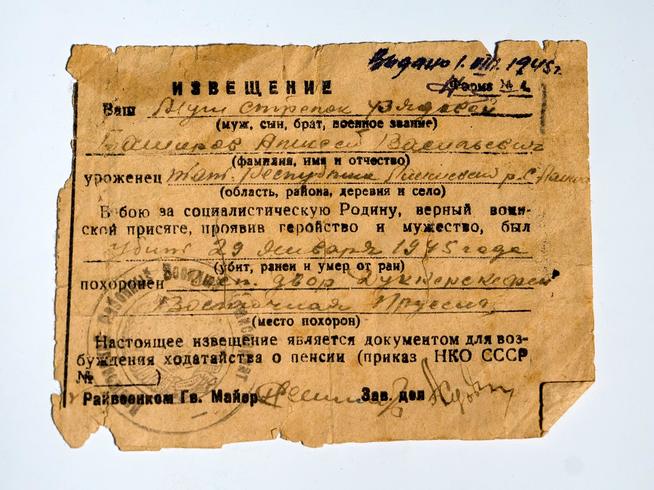 Выдано 1.VIII.1945г.
ИЗВЕЩЕНИЕ
Форма № 4
Ваш Муж стрелок рядовой
(муж, сын, брат, военное звание)
Алексей Васильевич
(фамилия, имя и отчество)
уроженец Тат. Республика
(область, района, деревня и село)
В бою за социалистическую Родину, верный воин-
ской присяге, проявив геройство и мужество, был
убит 29 Января 1945 года
(убит, ранен и умер от ран)
похоронен двор
Восточная Пруссия
(место похорон)
Настоящее извещение является документом для воз-
буждения ходатайства о пенсии (приказ НКО СССР
№ )
Райвоенком Гв. Майор Зав. дел